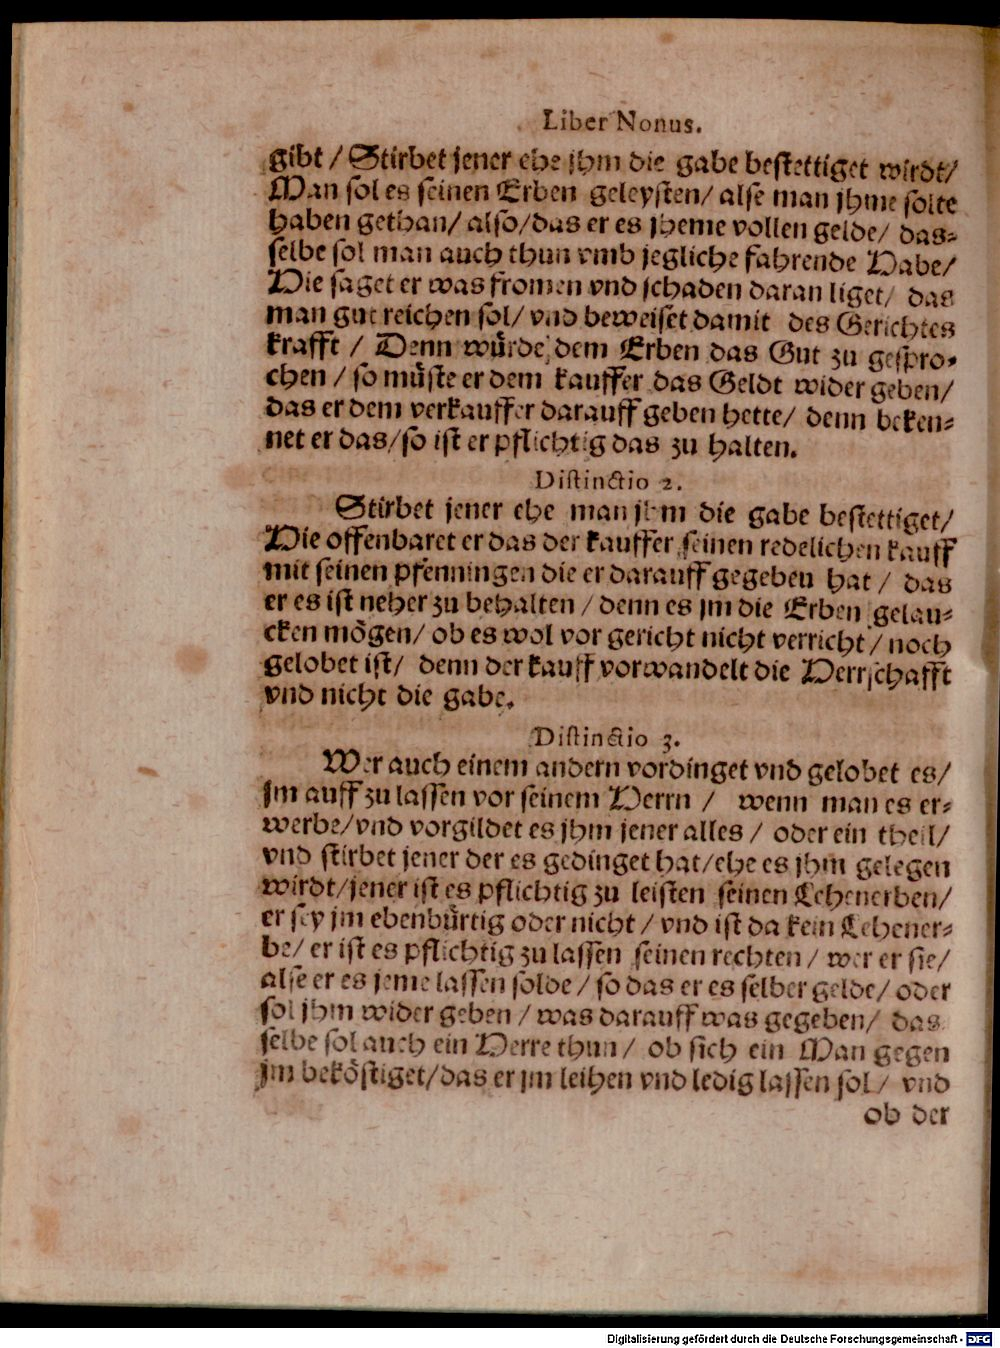 Liber Nonus.
gibt / Stirbet jener ehe jhm die gabe bestettiget wirdt/
Man sol es seinen Erben geleysten/ alse man jhme solte
haben gethan/ also/das er es jheme vollen gelde/ das-
selbe sol man auch thun vmb jegliche fahrende Habe/
Die saget er was fromen vnd schaden daran liget/ das
man gut reichen sol/ vnd beweiset damit des Gerichtes
krafft / Denn würde dem Erben das Gut zu gespro-
chen / so müste er dem kauffer das Geldt wider geben/
das er dem verkauffer darauff geben hette/ denn beken-
net er das/so ist er pflichtig das zu halten.
Distinctio 2.
Stirbet jener ehe man jhm die gabe bestettiget/
Hie offenbaret er das der kauffer seinen redelichen kauff
mit seinen pfenningen die er darauff gegeben hat / das
er es ist neher zu behalten / denn es jm die Erben gelau-
cken mögen/ ob es wol vor gericht nicht verricht / noch
gelobet ist/ denn der kauff vorwandelt die Herrschafft
vnd nicht die gabe.
Distinctio 3.
Wer auch einem andern vordinget vnd gelobet es/
jm auff zu lassen vor seinem Herrn / wenn man es er-
werbe/vnd vorgildet es jhm jener alles / oder ein theil/
vnd stirbet jener der es gedinget hat/ehe es jhm gelegen
wirdt/jener ist es pflichtig zu leisten seinen Lehenerben/
er sey jm ebenbürtig oder nicht / vnd ist da kein Lehener-
be/ er ist es pflichtig zu lassen seinen rechten / wer er sie/
alse er es jeme lassen solde / so das er es selber gelde/ oder
sol jhm wider geben / was darauff was gegeben/ das
selbe sol auch ein Herre thun / ob sich ein Man gegen
jm beköstiget/das er jm leihen vnd ledig lassen sol / vnd
ob der
Digitalisierung gefördert durch die Deutsche Forschungsgemeinschaft - DFG